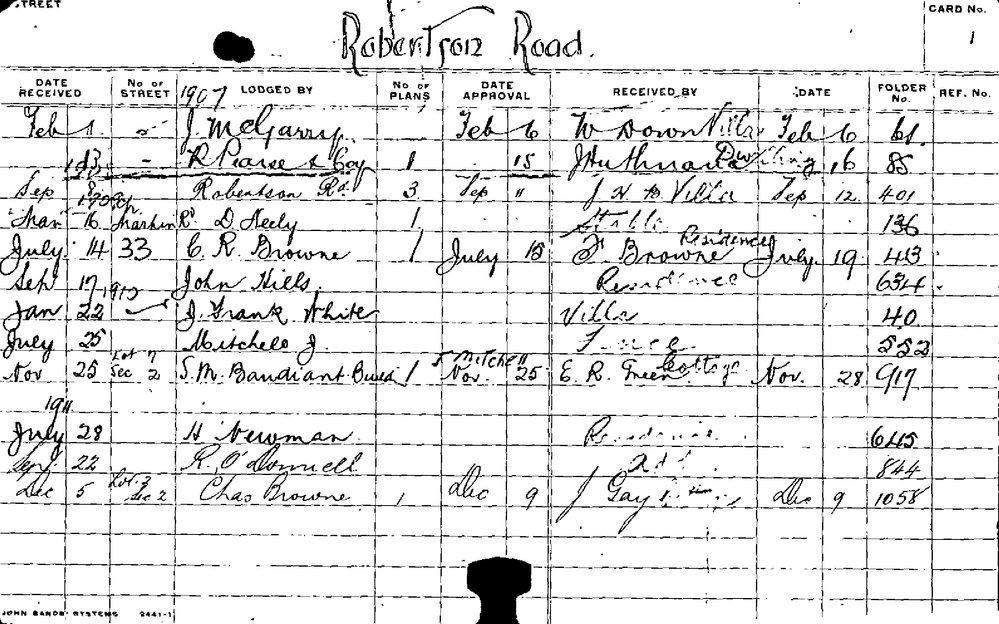 STREET
CARD No.
1
Robertson Road.
DATE RECEIVED No OF STREET LODGED BY No OF PLANS DATE APPROVAL RECEIVED BY DATE FOLDER No. REF. No.
1907
Feb 1 J. McGarry Feb 6 W Down Villa Feb 6 61
13 - R Pearse & Coy 1 15 Dwelling 16 85
Sep Robertson Rd. 3 Sep " J H B Villa Sep 12 401
16 D Heely 1 Stable 136
July 14 33 C. R. Browne 1 July 15 F Browne Residence July 19 413
Sep 17 John Hills Residence 634
Jan 22 J. Frank White Villa 40
July 25 Mitchell J. Fence 552
Nov 25 Lot 7 Sec 2 S. M. 1 J Mitchell Nov. 25 E. R. Green Cottage Nov. 28 917
1911
July 28 H Newman Residence 645
Sep 22 R. O'Donnell Add. 844
Dec 5 Lot 3 Sec 2 Chas Browne 1 Dec 9 J Gay Dec 9 1058
JOHN SANDS SYSTEMS 2441-1